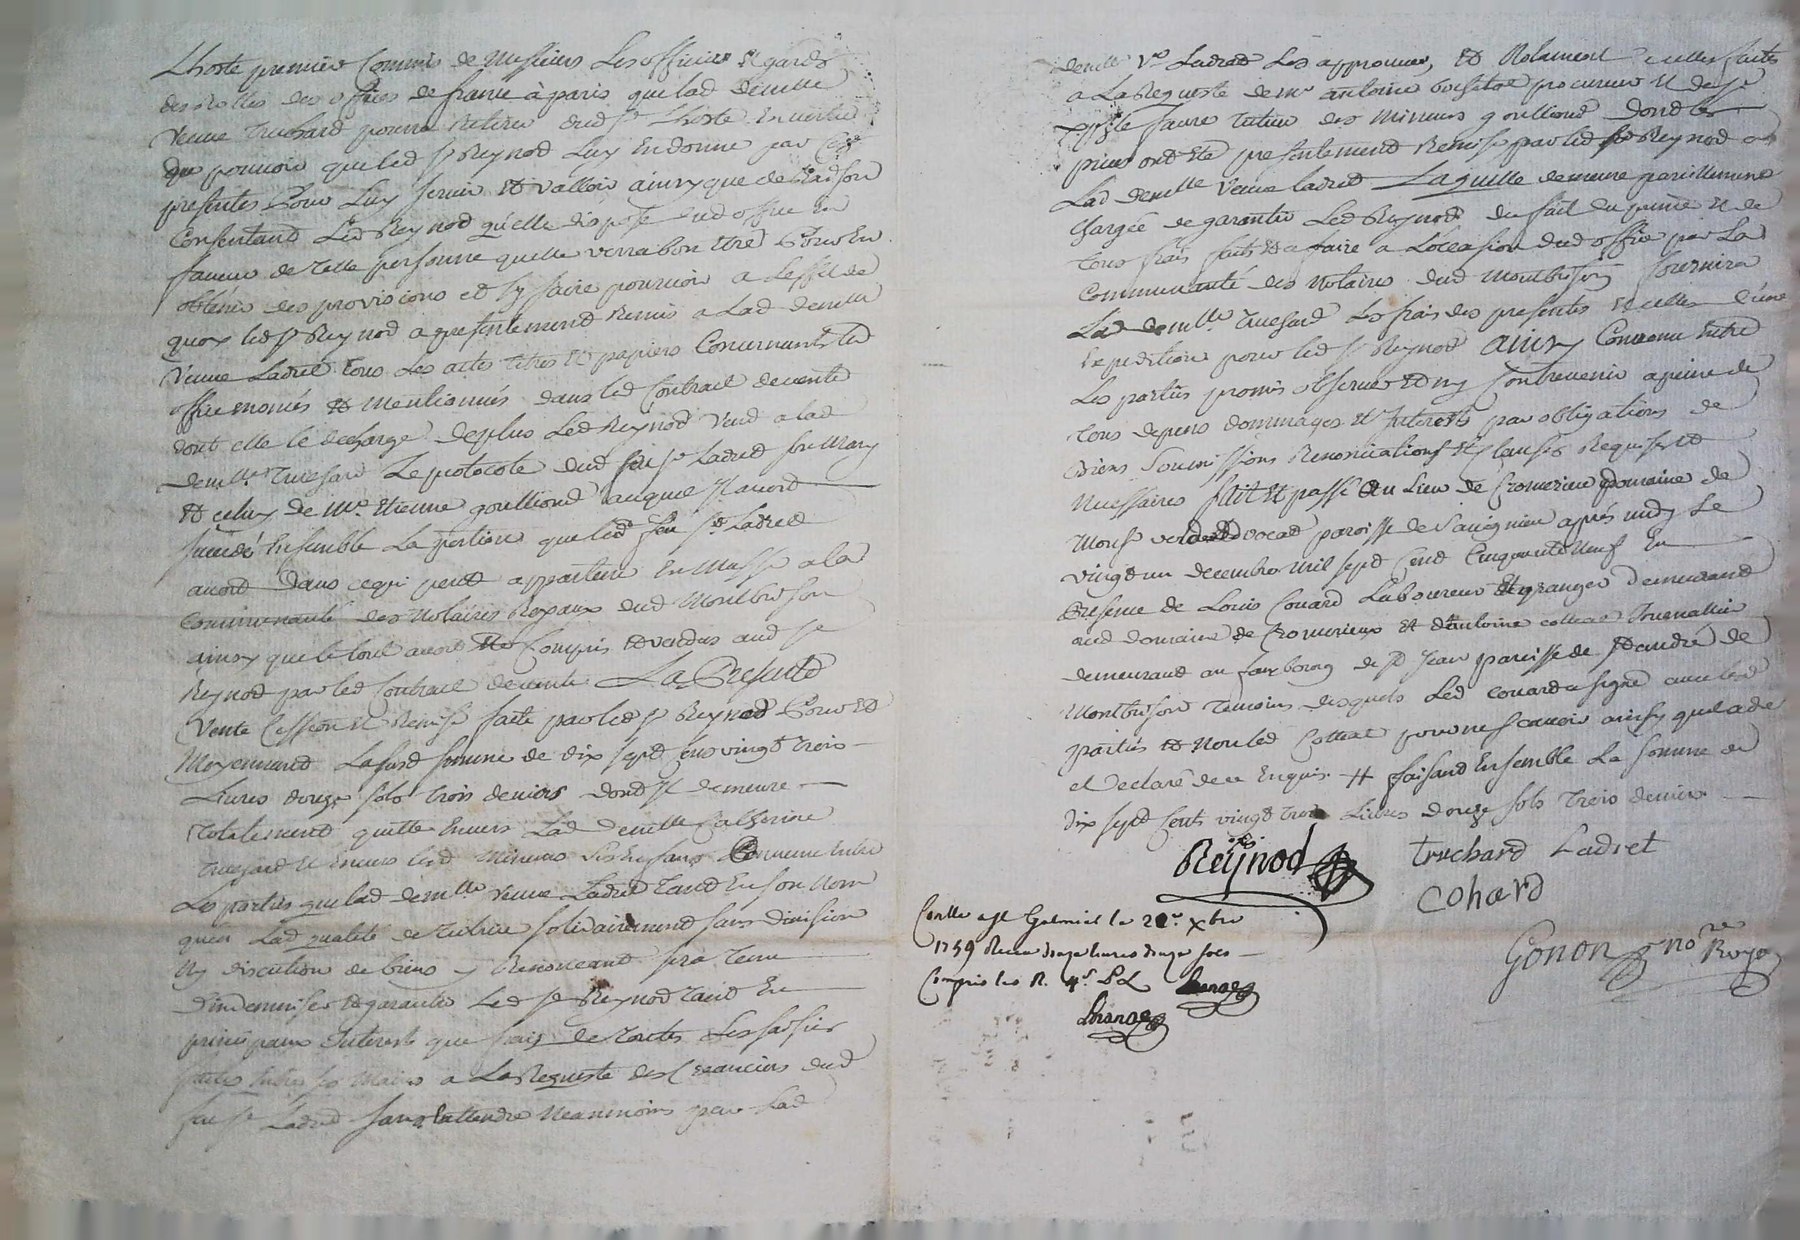 Lhoste premier Commis de Messieurs Les officiers et gardes
des Rolles des offices de france à paris que lad demelle
veuve Truchard pourra Retirer dud Sr Lhoste En vertu
du pouvoir que led Sr Reynod Luy En donne par Ces
presentes Pour Luy servir et valloir ainsy que de Raison
Consentand Led Reynod qu'elle dispose dud office En
faveur de telle personne quelle verra bon Etre Pour En
obtenir des provisions et sy faire pourvoir a Leffet de
quoy led Sr Reynod a presentement Remis a Lad demelle
Veuve Ladret tous Les actes titres et papiers Concernants led
office enoncés et mentionnés dans led Contract de vente
dont elle le decharge Deplus Led Reynod Vend a lad
demelle Truchard Le protocole dud feu Sr Ladret son Mary
et celuy de Me Etienne goullioud auquel Il avoit
succedé Ensemble La portion que led feu Sr Ladret
avoit Dans ce qui peut appartenir En Masse a la
Communauté des Notaires Royaux dud Montbrison
ainsy que le tout avoit Eté Compris et vendus aud Sr
Reynod par led Contract de vente La Presente
Vente Cession et Remise faite par led Sr Reynod Pour et
Moyennant La susd somme de dix sept Cens vingt trois
Livres douze sols trois deniers dont Il demeure
totalement quitte Envers Lad Demelle Catherine
Truchard et Envers lesd Mineurs Ses Enfans Convenu Entre
Les parties que lad demelle veuve Ladret tant En son Nom
qu'en Lad qualité de tutrice solidairement sans division
Ny discution de biens y Renonceant sera Tenue
D'indemniser et garantir Led Sr Reynod tant En
principaux Interests que frais de toutes Les saisies
faites Entre ses Mains a La Requeste des Creanciers dud
feu Sr Ladret sans Entendre Neanmoins par Lad
demelle Ve Ladret Les approuver, et Notament celles faites
a La Requeste de Me antoine procureur et de Sr
faure tuteur des Mineurs goullioud dont les
pieces ont Eté presentement Remises par led Sr Reynod a
Lad demelle veuve ladret Laquelle demeure pareillement
Chargée de garantir Led Reynod du fait du prince et de
tous frais faits et a faire a Loccasion dud office par La
Communauté des Notaires dud Montbrison fournira
Lad demelle Truchard Les frais des presentes et celles d'une
Expedition pour led Sr Reynod ainsy Convenu Entre
Les parties promis observer et ny Contrevenir a peine de
tous depens dommages et Interests par obligations de
biens Soumissions Renonciations et Clauses Requises et
Necessaires fait et passé au Lieu de Cromerieu domaine de
Monsr avocat paroisse de Savignieu après midy Le
vingt un decembre mil sept Cent Cinquante Neuf En
Presence de Louis Couard Laboureur et granger Demeurant
aud domaine de Cromerieux et d'antoine Cottat Journallier
demeurant au fauxbourg de St Jean paroisse de St andré de
Montbrison temoins desquels Led Couard a signé avec les
parties et Non led Cottat pour ne scavoir ainsy quil a dit
et Declaré de ce Enquis # faisant Ensemble La somme de
dix sept Cents vingt trois Livres douze sols trois deniers
Reÿnod truchard Ladret
Cohard
Conllé a St Galmiel le 22e Xbre
1759 Receu douze livres douze sols
Compris les R. 4s. PL
Gonon no re Roya